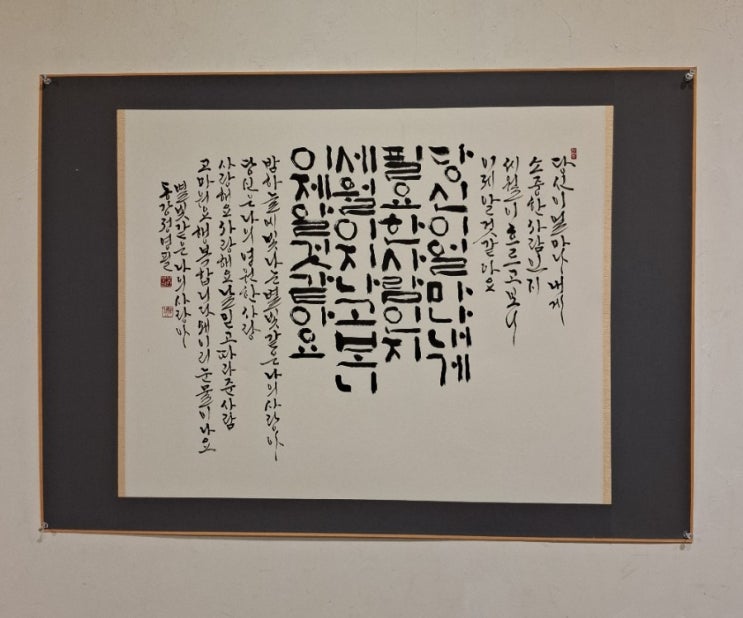 당신이 얼마나 내게
소중한 사람인지
세월이 흐르고 보니
이제 알 것 같아요
당신이 얼마나 내게
필요한 사람인지
세월이 지나고 보니
이제 알 것 같아요
밤하늘에 빛나는 별빛 같은 나의 사랑아
당신은 나의 영원한 사랑
사랑해요 사랑해요 날 믿고 따라준 사람
고마워요 행복합니다 왜 이리 눈물이 나요
별빛 같은 나의 사랑아
동강 정영필